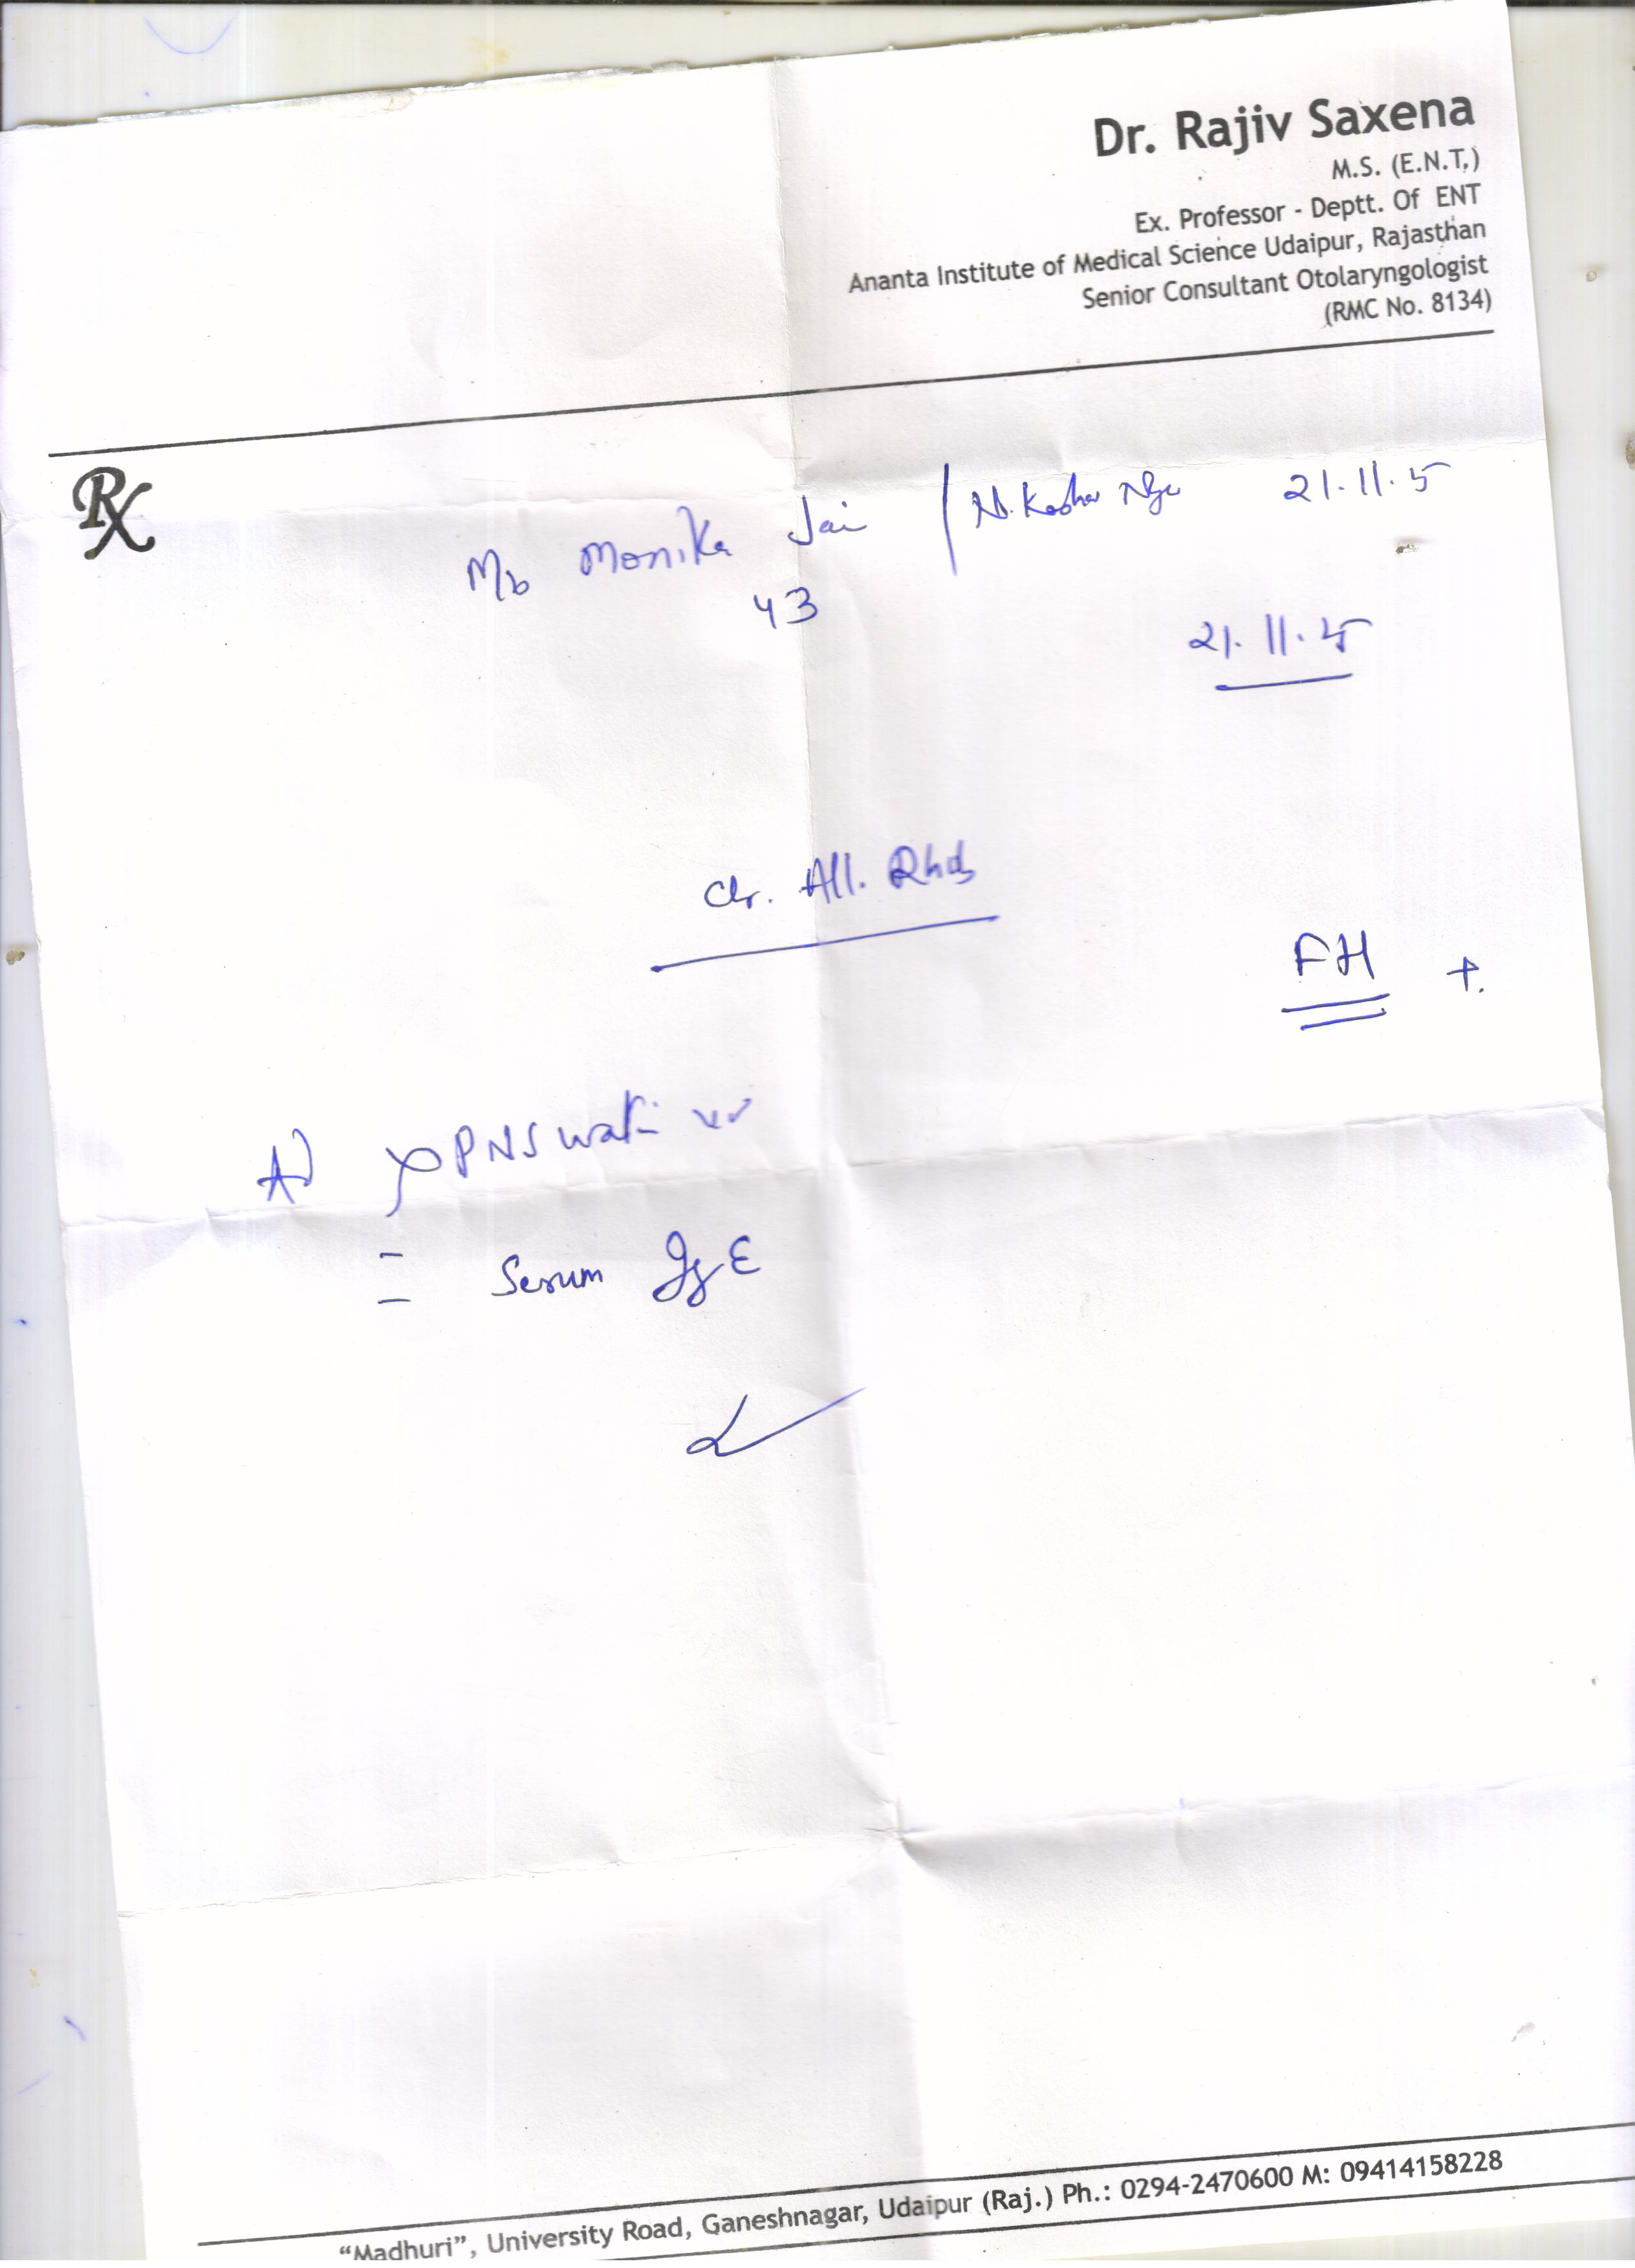 Dr. Rajiv Saxena
M.S. (E.N.T.)
Ex. Professor - Deptt. Of ENT
Ananta Institute of Medical Science Udaipur, Rajasthan
Senior Consultant Otolaryngologist
(RMC No. 8134)
Rx
Monika Jai 21.11.5
43
21.11.5
Chr. All.
FH +.
A) PNS
= Serum IgE
“Madhuri”, University Road, Ganeshnagar, Udaipur (Raj.) Ph.: 0294-2470600 M: 09414158228